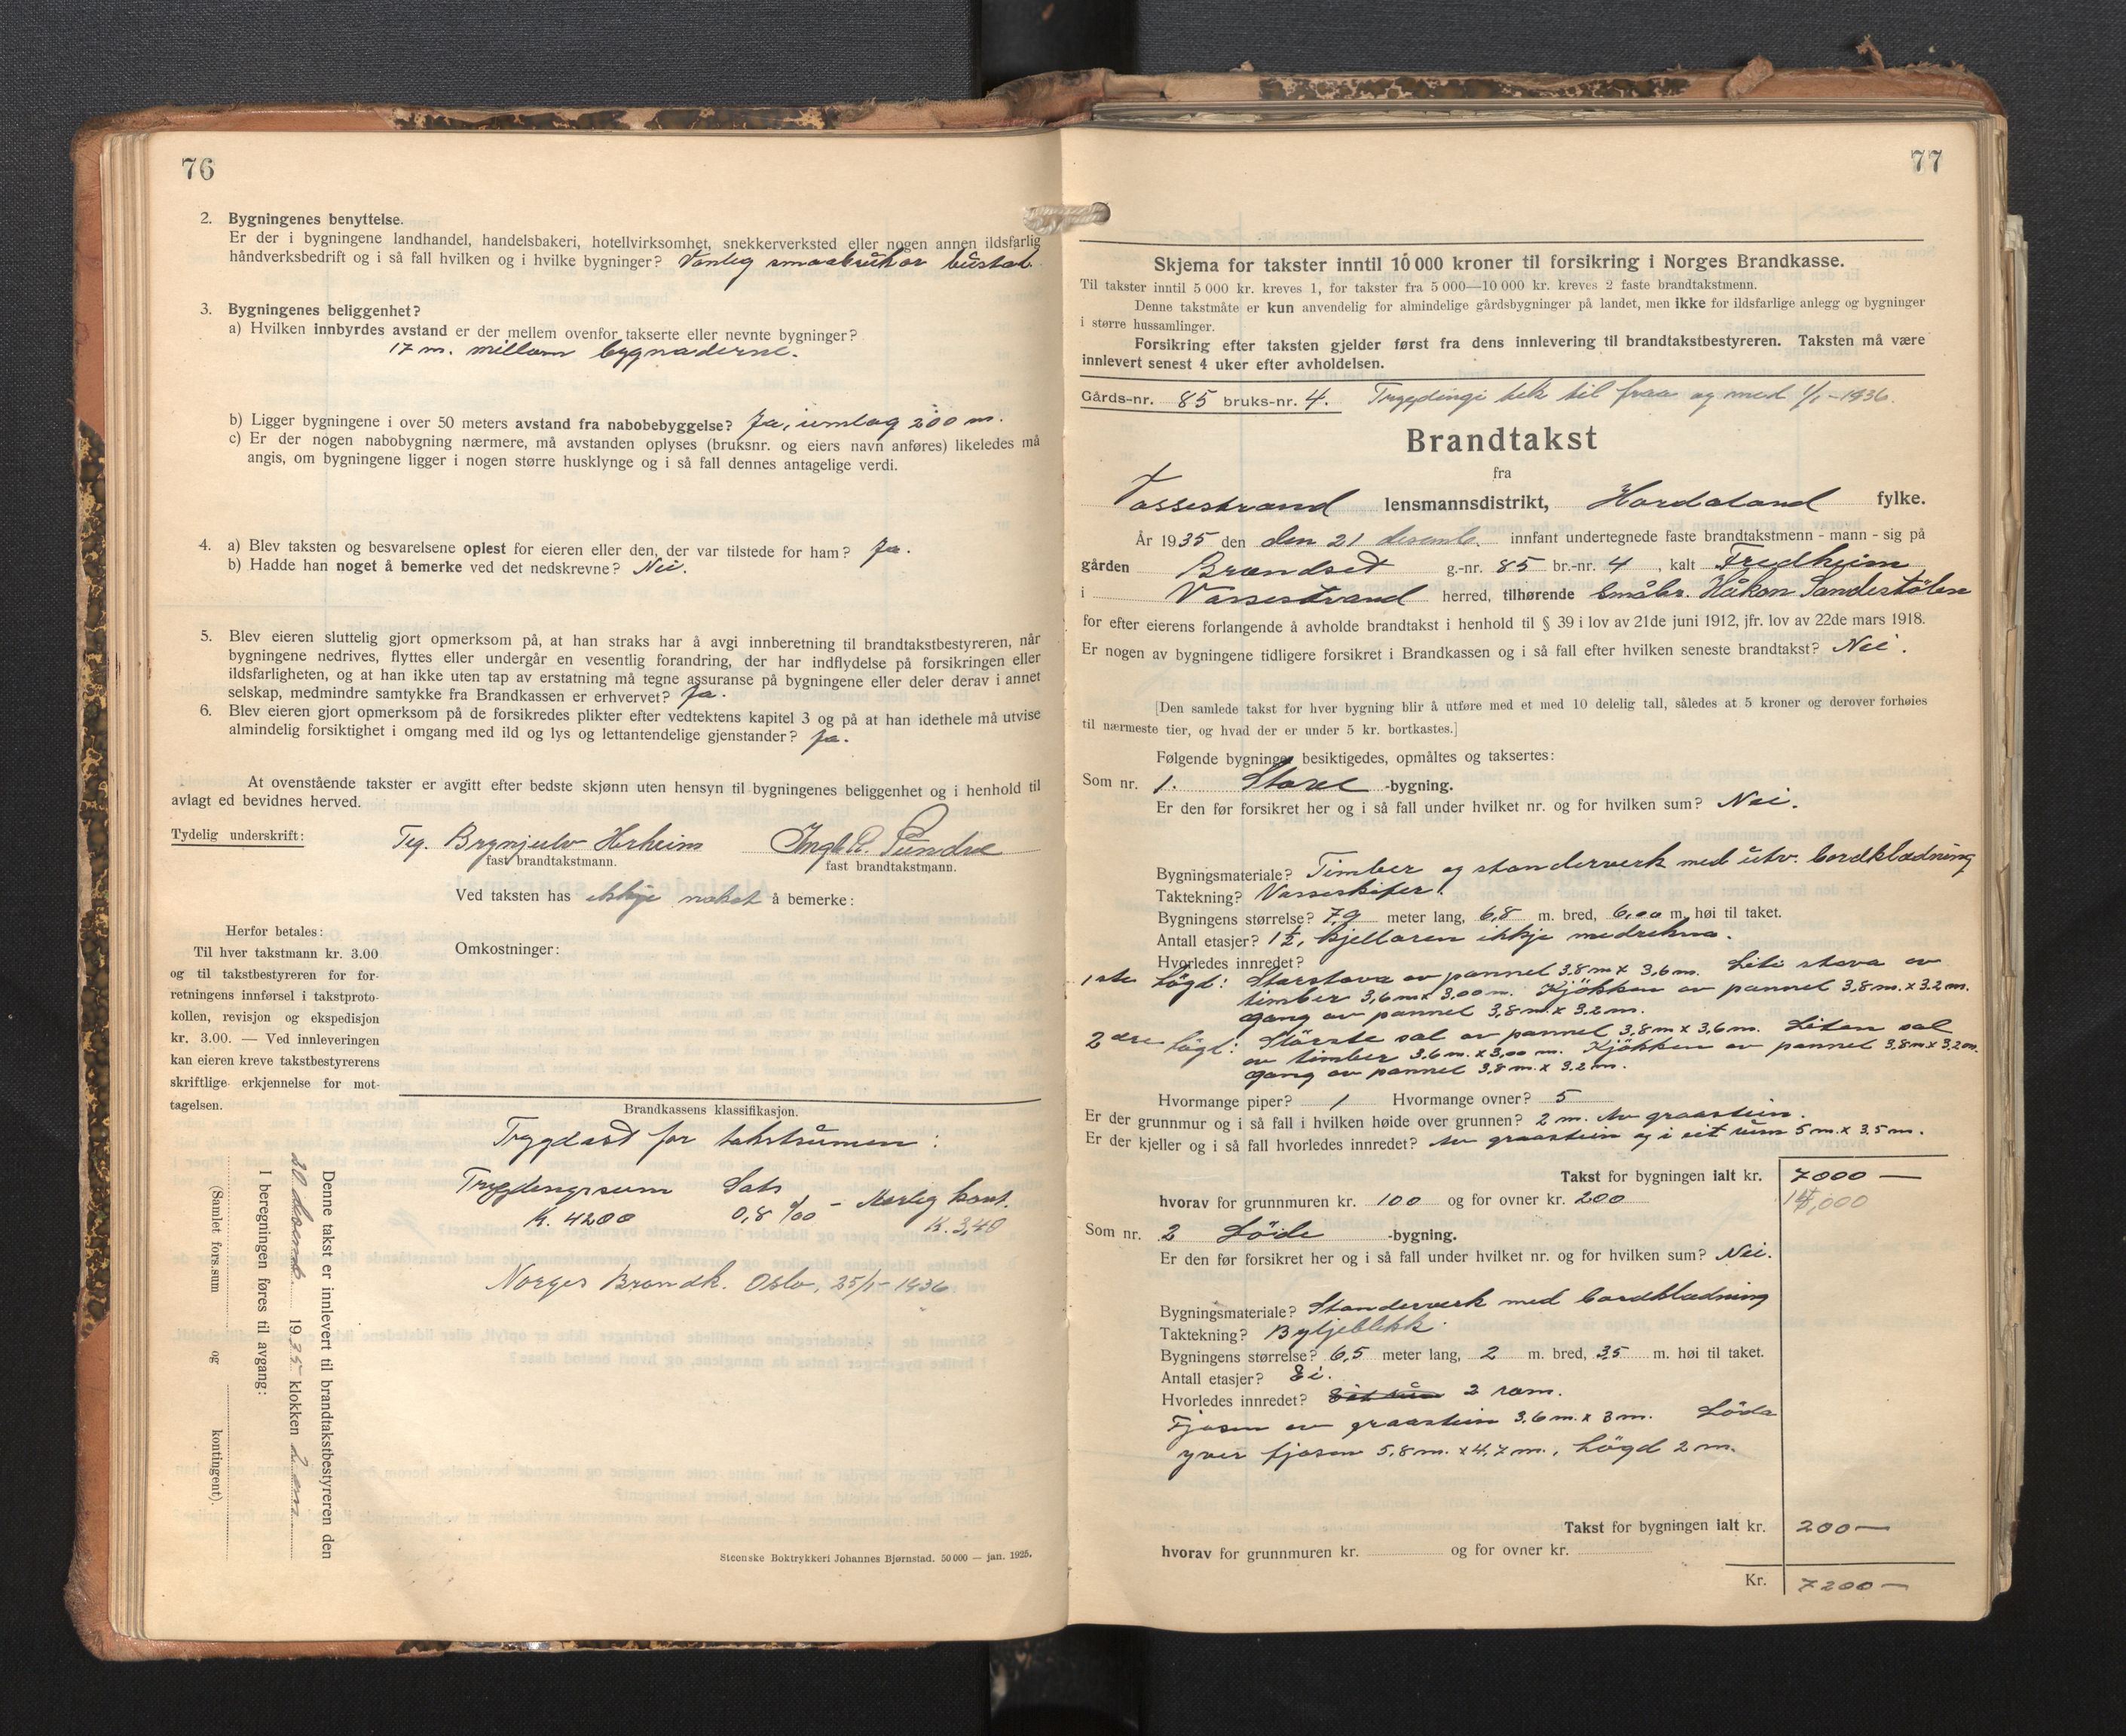 76
2. Bygningenes benyttelse.
Er der i bygningene landhandel, handelsbakeri, hotellvirksomhet, snekkerverksted eller nogen annen ildsfarlig
håndverksbedrift og i så fall hvilken og i hvilke bygninger? Vanleg smaabrukar bustad.
3. Bygningenes beliggenhet?
a) Hvilken innbyrdes avstand er der mellem ovenfor takserte eller nevnte bygninger?
17 m. millom bygnaderne.
b) Ligger bygningene i over 50 meters avstand fra nabobebyggelse? Ja, umlag 200 m.
c) Er der nogen nabobygning nærmere, må avstanden oplyses (bruksnr. og eiers navn anføres) likeledes må
angis, om bygningene ligger i nogen større husklynge og i så fall dennes antagelige verdi.
4. a) Blev taksten og besvarelsene oplest for eieren eller den, der var tilstede for ham? Ja.
b) Hadde han noget å bemerke ved det nedskrevne? Nei.
5. Blev eieren sluttelig gjort opmerksom på, at han straks har å avgi innberetning til brandtakstbestyreren, når
bygningene nedrives, flyttes eller undergår en vesentlig forandring, der har indflydelse på forsikringen eller
ildsfarligheten, og at han ikke uten tap av erstatning må tegne assuranse på bygningene eller deler derav i annet
selskap, medmindre samtykke fra Brandkassen er erhvervet? Ja.
6. Blev eieren gjort opmerksom på de forsikredes plikter efter vedtektens kapitel 3 og på at han idethele må utvise
almindelig forsiktighet i omgang med ild og lys og lettantendelige gjenstander? Ja.
At ovenstående takster er avgitt efter bedste skjønn uten hensyn til bygningenes beliggenhet og i henhold til
avlagt ed bevidnes herved.
Tydelig underskrift: Teg. Brynjulv Herheim Ingb. R. Tundre
fast brandtakstmann. fast brandtakstmann.
Ved taksten has ikkje nokot å bemerke:
Omkostninger:
Herfor betales:
Til hver takstmann kr. 3.00
og til takstbestyreren for for-
retningens innførsel i takstproto-
kollen, revisjon og ekspedisjon
kr. 3.00. — Ved innleveringen
kan eieren kreve takstbestyrerens
skriftlige erkjennelse for mot-
tagelsen.
Brandkassens klassifikasjon.
Trygdast for takstsumen:
Trygdingssum Sats
K. 4200 0,8 ‰ - Aarleg kont.
K. 3,40
Norges Brandk. Oslo, 25/1-1936
Denne takst er innlevert til brandtakstbestyreren den
30 desemb. 1935 klokken 2 em
I beregningen føres til avgang:
(Samlet fors.sum og kontingent).
Steenske Boktrykkeri Johannes Bjørnstad. 50 000 — jan. 1925.
77
Skjema for takster inntil 10 000 kroner til forsikring i Norges Brandkasse.
Til takster inntil 5 000 kr. kreves 1, for takster fra 5 000—10 000 kr. kreves 2 faste brandtakstmenn.
Denne takstmåte er kun anvendelig for almindelige gårdsbygninger på landet, men ikke for ildsfarlige anlegg og bygninger
i større hussamlinger.
Forsikring efter taksten gjelder først fra dens innlevering til brandtakstbestyreren. Taksten må være
innlevert senest 4 uker efter avholdelsen.
Gårds-nr. 85 bruks-nr. 4. Trygdingi tek til fraa og med 1/1-1936.
Brandtakst
fra
Vossestrand lensmannsdistrikt, Hordaland fylke.
År 1935 den den 21 desemb. innfant undertegnede faste brandtakstmenn - mann - sig på
gården Brandset g.-nr. 85 br.-nr. 4, kalt Fredheim
i Vossestrand herred, tilhørende Småbr. Håkon Sandestølen
for efter eierens forlangende å avholde brandtakst i henhold til § 39 i lov av 21de juni 1912, jfr. lov av 22de mars 1918.
Er nogen av bygningene tidligere forsikret i Brandkassen og i så fall efter hvilken seneste brandtakst? Nei.
[Den samlede takst for hver bygning blir å utføre med et med 10 delelig tall, således at 5 kroner og derover forhøies
til nærmeste tier, og hvad der er under 5 kr. bortkastes.]
Følgende bygninger besiktigedes, opmåltes og taksertes:
Som nr. 1. -bygning.
Er den før forsikret her og i så fall under hvilket nr. og for hvilken sum? Nei.
Bygningsmateriale? Timber og standerverk med utv. bordklædning
Taktekning? Vosseskifer.
Bygningens størrelse? 7,9 meter lang, 6,8 m. bred, 6,00 m. høi til taket.
Antall etasjer? 1½, kjellaren ikkje medrekna.
Hvorledes innredet?
1ste högd: Storstova av pannel 3,8 m x 3,6 m. Liti stova av
timber 3,6 m x 3,00 m. Kjökken av pannel 3,8 m. x 3.2 m.
gang av pannel 3,8 m. x 3.2 m.
2dre högd: Største sal av pannel 3,8 m x 3,6 m. Liten sal
av timber 3.6 m. x 3,00 m. Kjökken av pannel 3,8 m x 3,2 m.
gang av pannel 3,8 m. x 3.2 m.
Hvormange piper? 1 Hvormange ovner? 5
Er der grunnmur og i så fall i hvilken høide over grunnen? 2 m. Av graastein.
Er der kjeller og i så fall hvorledes innredet? Av graastein og i eit rum 5 m. x 3,5 m.
Takst for bygningen ialt kr. 7000 —
hvorav for grunnmuren kr. 100 og for ovner kr. 200
Som nr. 2 Löde -bygning.
Er den før forsikret her og i så fall under hvilket nr. og for hvilken sum? Nei.
Bygningsmateriale? Standerverk med bordklædning
Taktekning? Bylgjeblikk.
Bygningens størrelse? 6,5 meter lang, 2 m. bred, 3,5 m. høi til taket.
Antall etasjer? Ei.
Hvorledes innredet? 2 rom.
Fjosen av graastein 3,6 m. x 3 m. Löda
yver fjosen 5,8 m. x 4,7 m., högd 2 m.
Takst for bygningen ialt kr. 200 —
hvorav for grunnmuren kr. og for ovner kr.
Kr. 7200 —